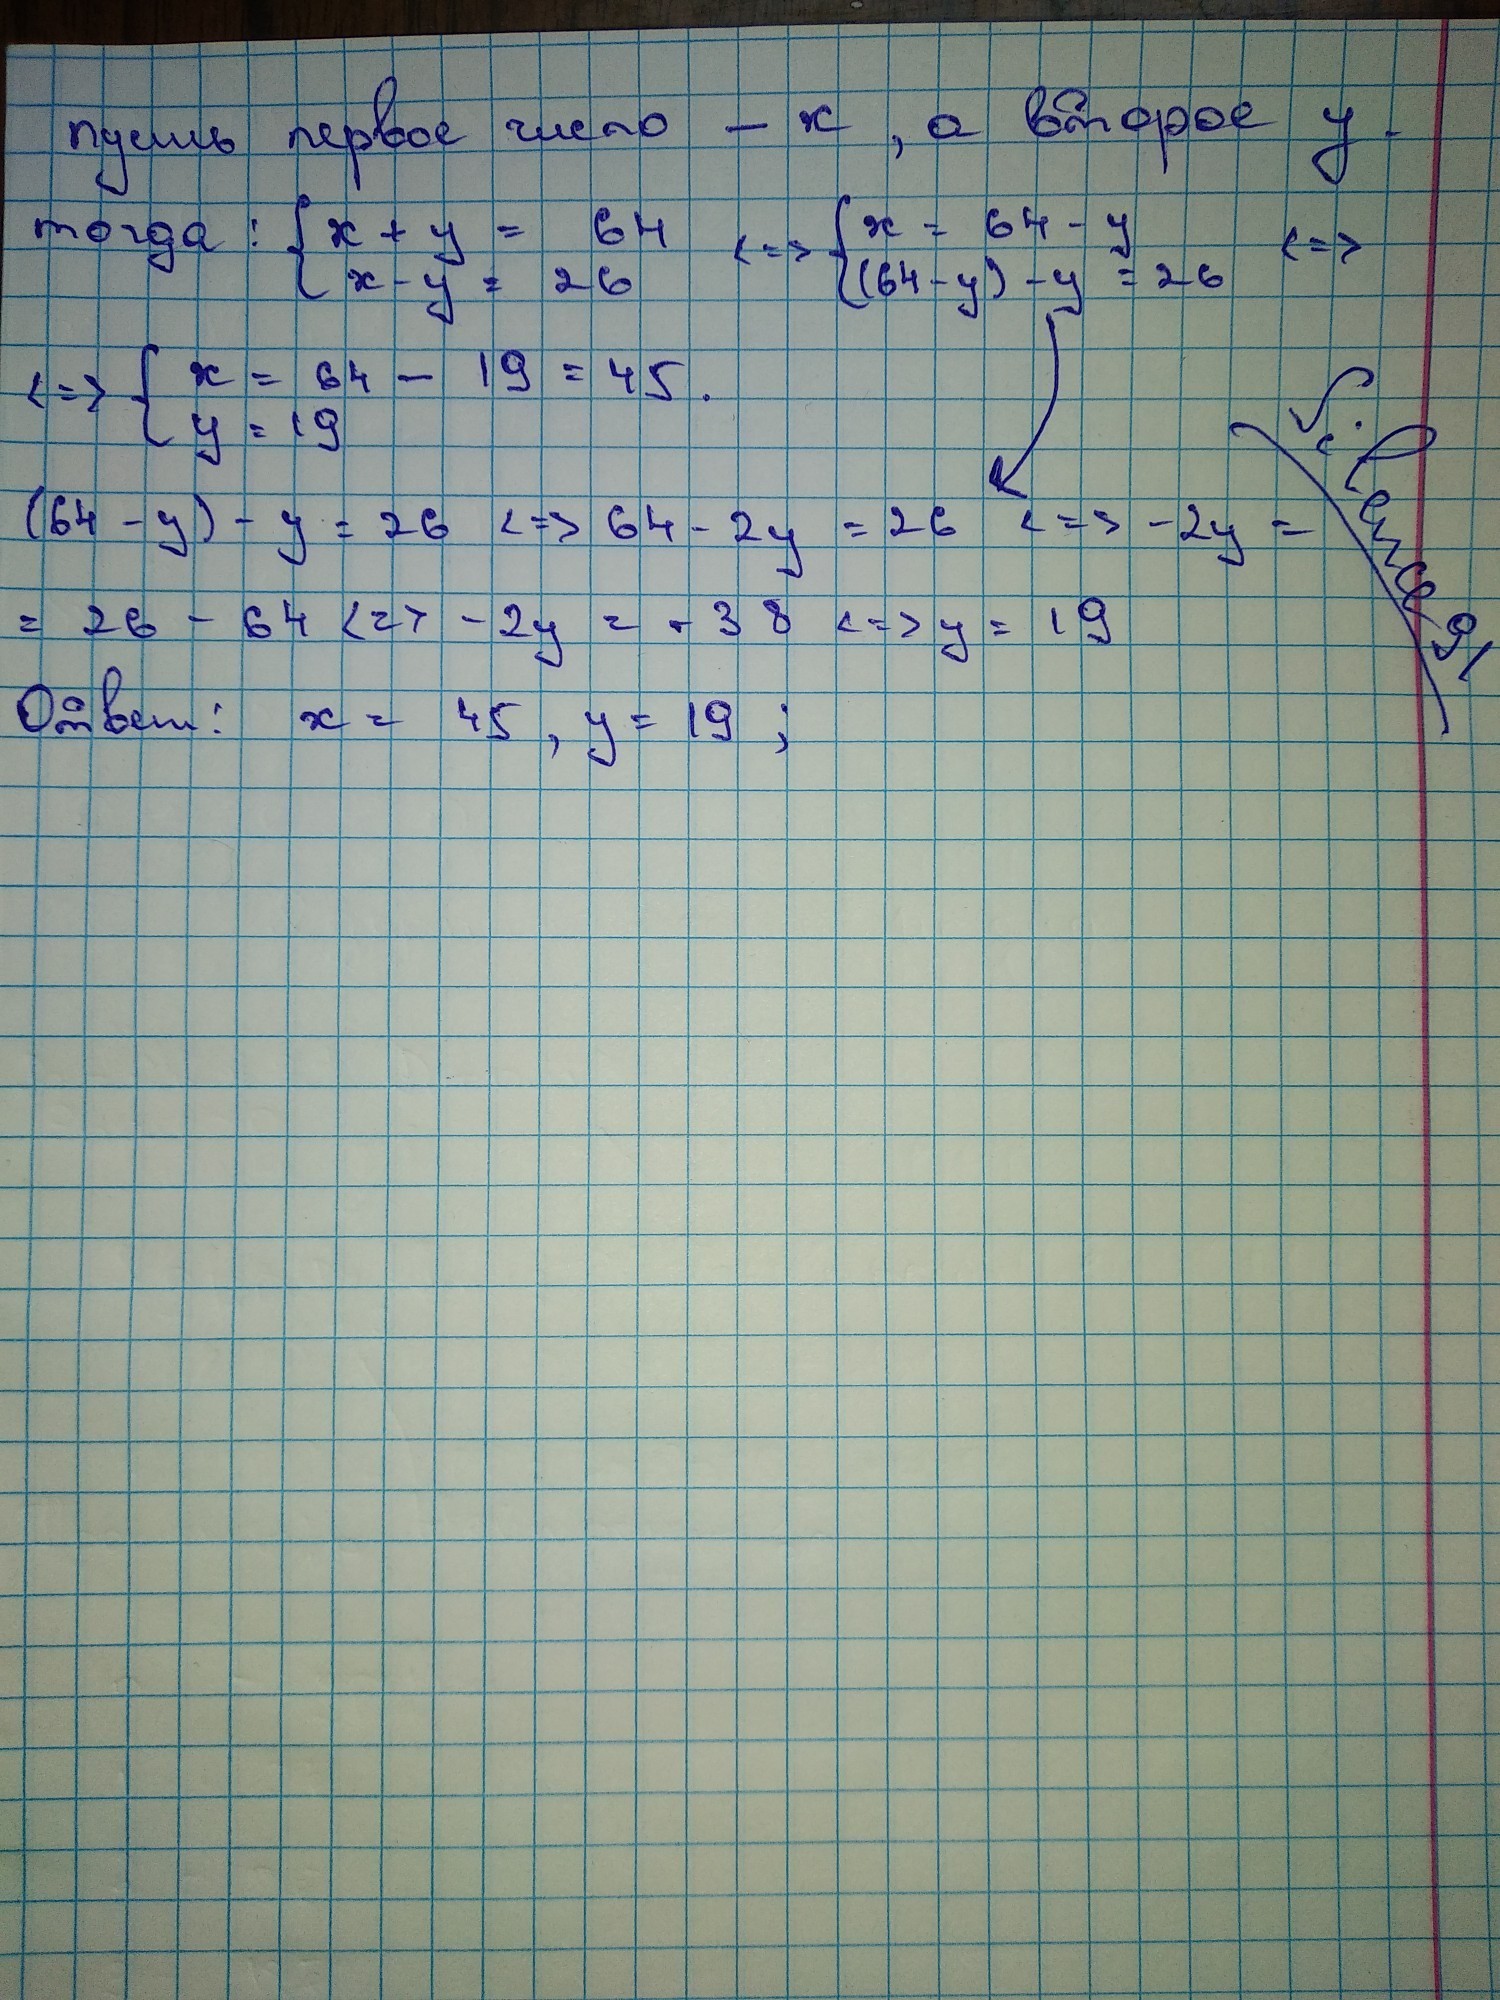 пусть первое число - x, а второе y.
тогда: { x + y = 64 <=> { x = 64 - y <=>
x - y = 26 (64 - y) - y = 26
<=> { x = 64 - 19 = 45.
y = 19
(64 - y) - y = 26 <=> 64 - 2y = 26 <=> -2y =
= 26 - 64 <=> -2y = -38 <=> y = 19
Ответ: x = 45, y = 19;
Silence91